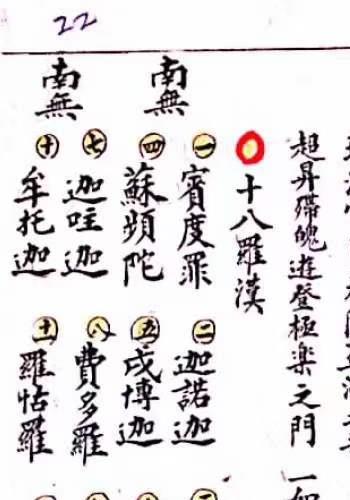 22
超昇滯魄遊登極楽之門 一
十八羅漢
南無
㊀賓度罪 ㊁迦諾迦
㊃蘇頻陀 ㊄戍博迦
南無
㊆迦哇迦 ㊇費多羅
㊉牟托迦 十一羅怙羅